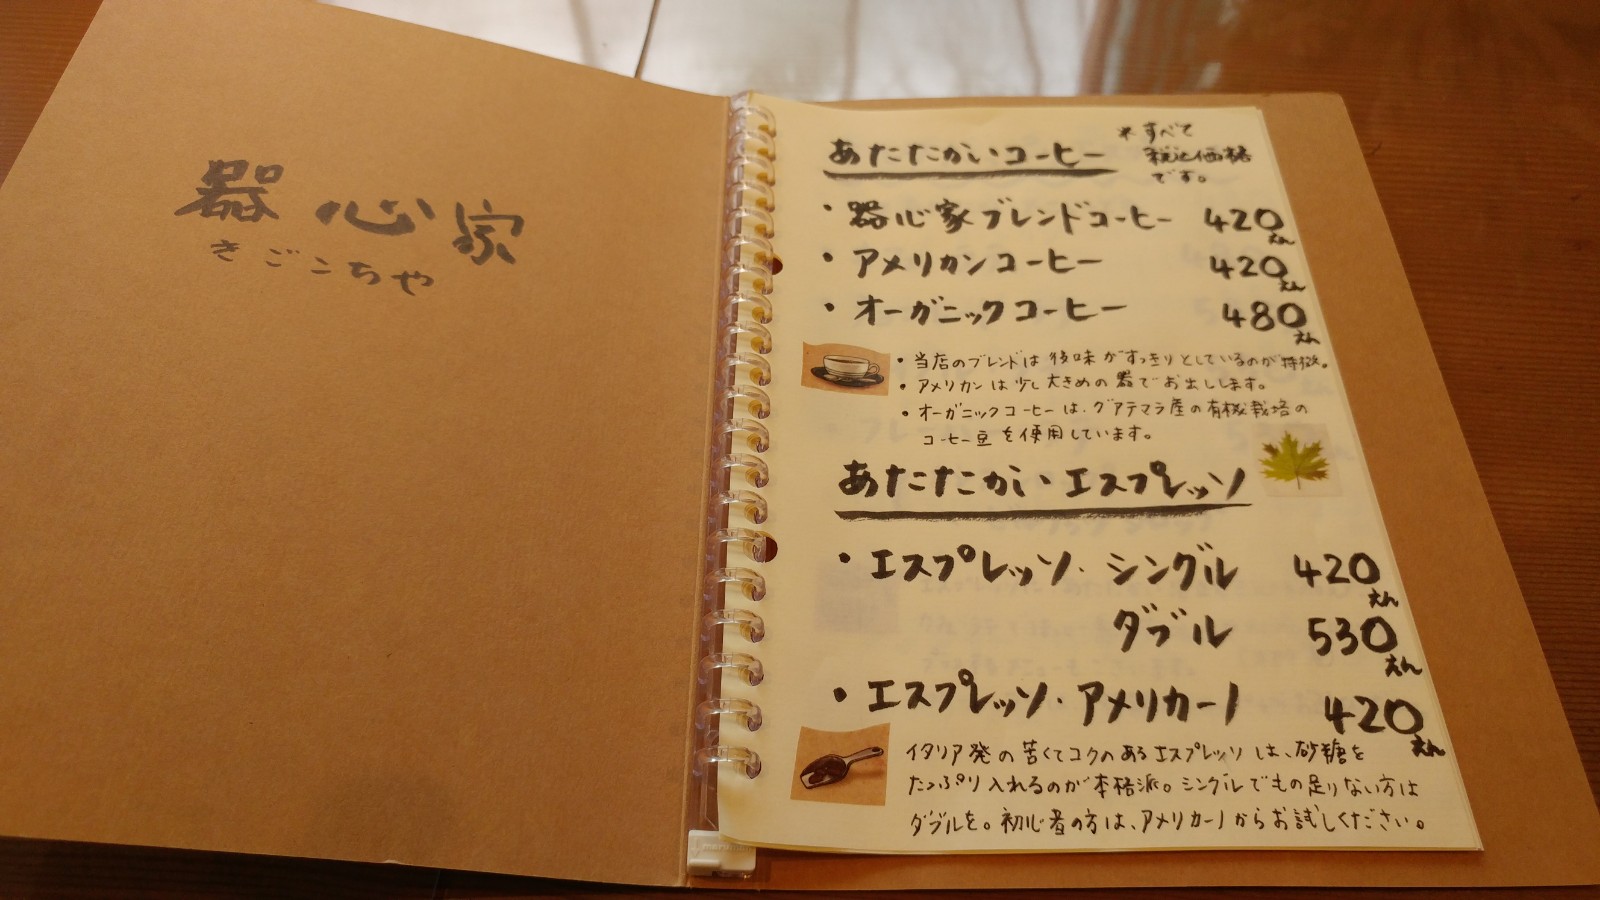 器心家
きごこちや
あたたかいコーヒー
*すべて
税込価格
です。
・器心家ブレンドコーヒー 420えん
・アメリカンコーヒー 420えん
・オーガニックコーヒー 480えん
・当店のブレンドは後味がすっきりとしているのが特徴。
・アメリカンは少し大きめの器でお出しします。
・オーガニックコーヒーは、グアテマラ産の有機栽培の
コーヒー豆を使用しています。
あたたかい・エスプレッソ
・エスプレッソ・シングル 420えん
ダブル 530えん
・エスプレッソ・アメリカーノ 420えん
イタリア発の苦くてコクのあるエスプレッソは、砂糖を
たっぷり入れるのが本格派。シングルでもの足りない方は
ダブルを。初心者の方は、アメリカーノからお試しください。